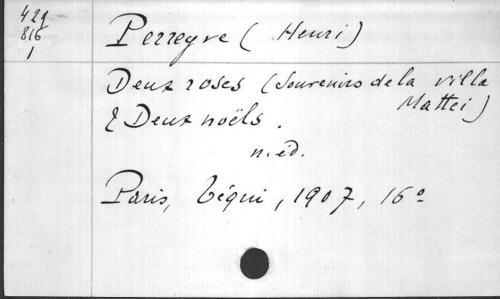 429
816
1
Perreyve (Henri)
Deux roses (Souvenirs de la villa
Mattei)
& Deux noëls.
n. éd.
Paris, Téqui, 1907, 16º